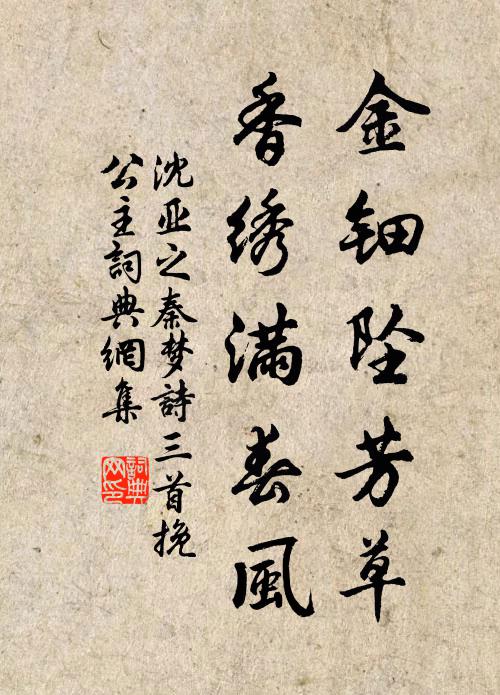 金钿坠芳草
香绣满春風
沈亚之秦梦詩三首挽
公主詞典網集
詞典
网印